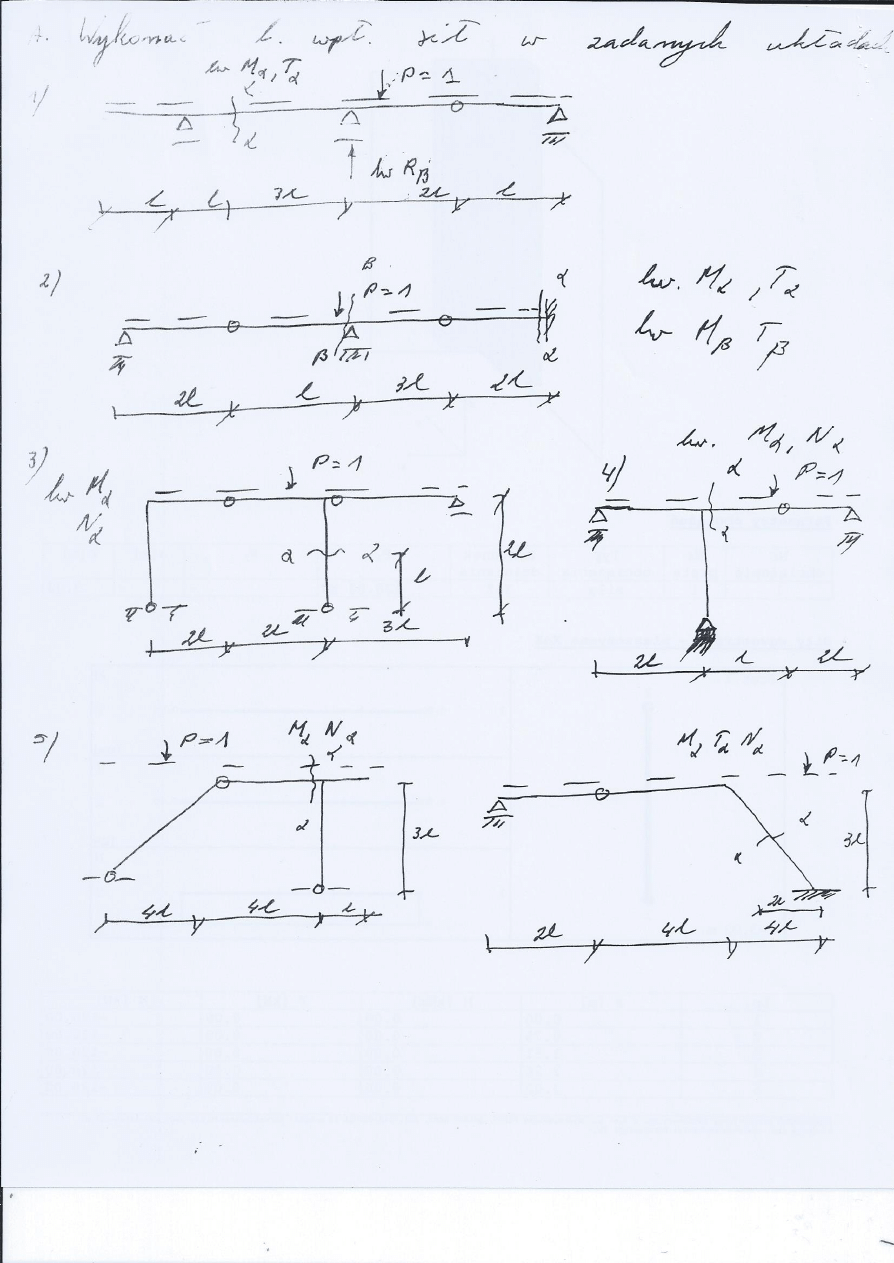 A. Wykonać l. wpł. sił w zadanych układach
lw Mα, Tα
1)
α
P=1
α
lw Rβ
l l 3l 2l l
2)
β
P=1
β
α
α
lw. Mα, Tα
lw Mβ Tβ
2l l 3l 2l
3)
lw Mα
Nα
P=1
α α
l
2l
2l 2l 3l
4)
lw. Mα, Nα
α
P=1
α
2l l 2l
5)
P=1
Mα Nα
α
α
3l
4l 4l l
Mα Tα Nα
P=1
α
α
3l
2l
2l 4l 4l